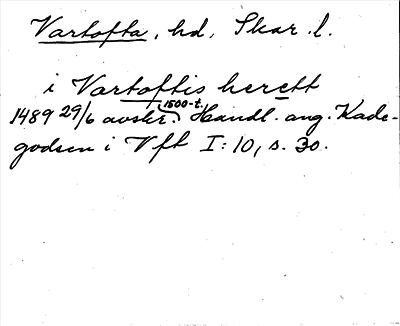 Vartofta, hd, Skar. l.
i Vartoftis herett
1489 29/6 avskr. 1500-t. Handl. ang. Kade-
godsen i Vft I:10, s. 30.